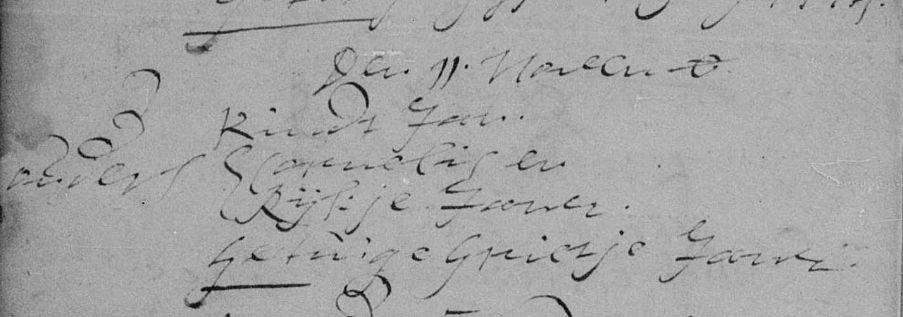 Den 11. Novemb
Kindt Jan.
ouders Cornelis en
Rijkje Jans.
Getuige Grietje Jans.